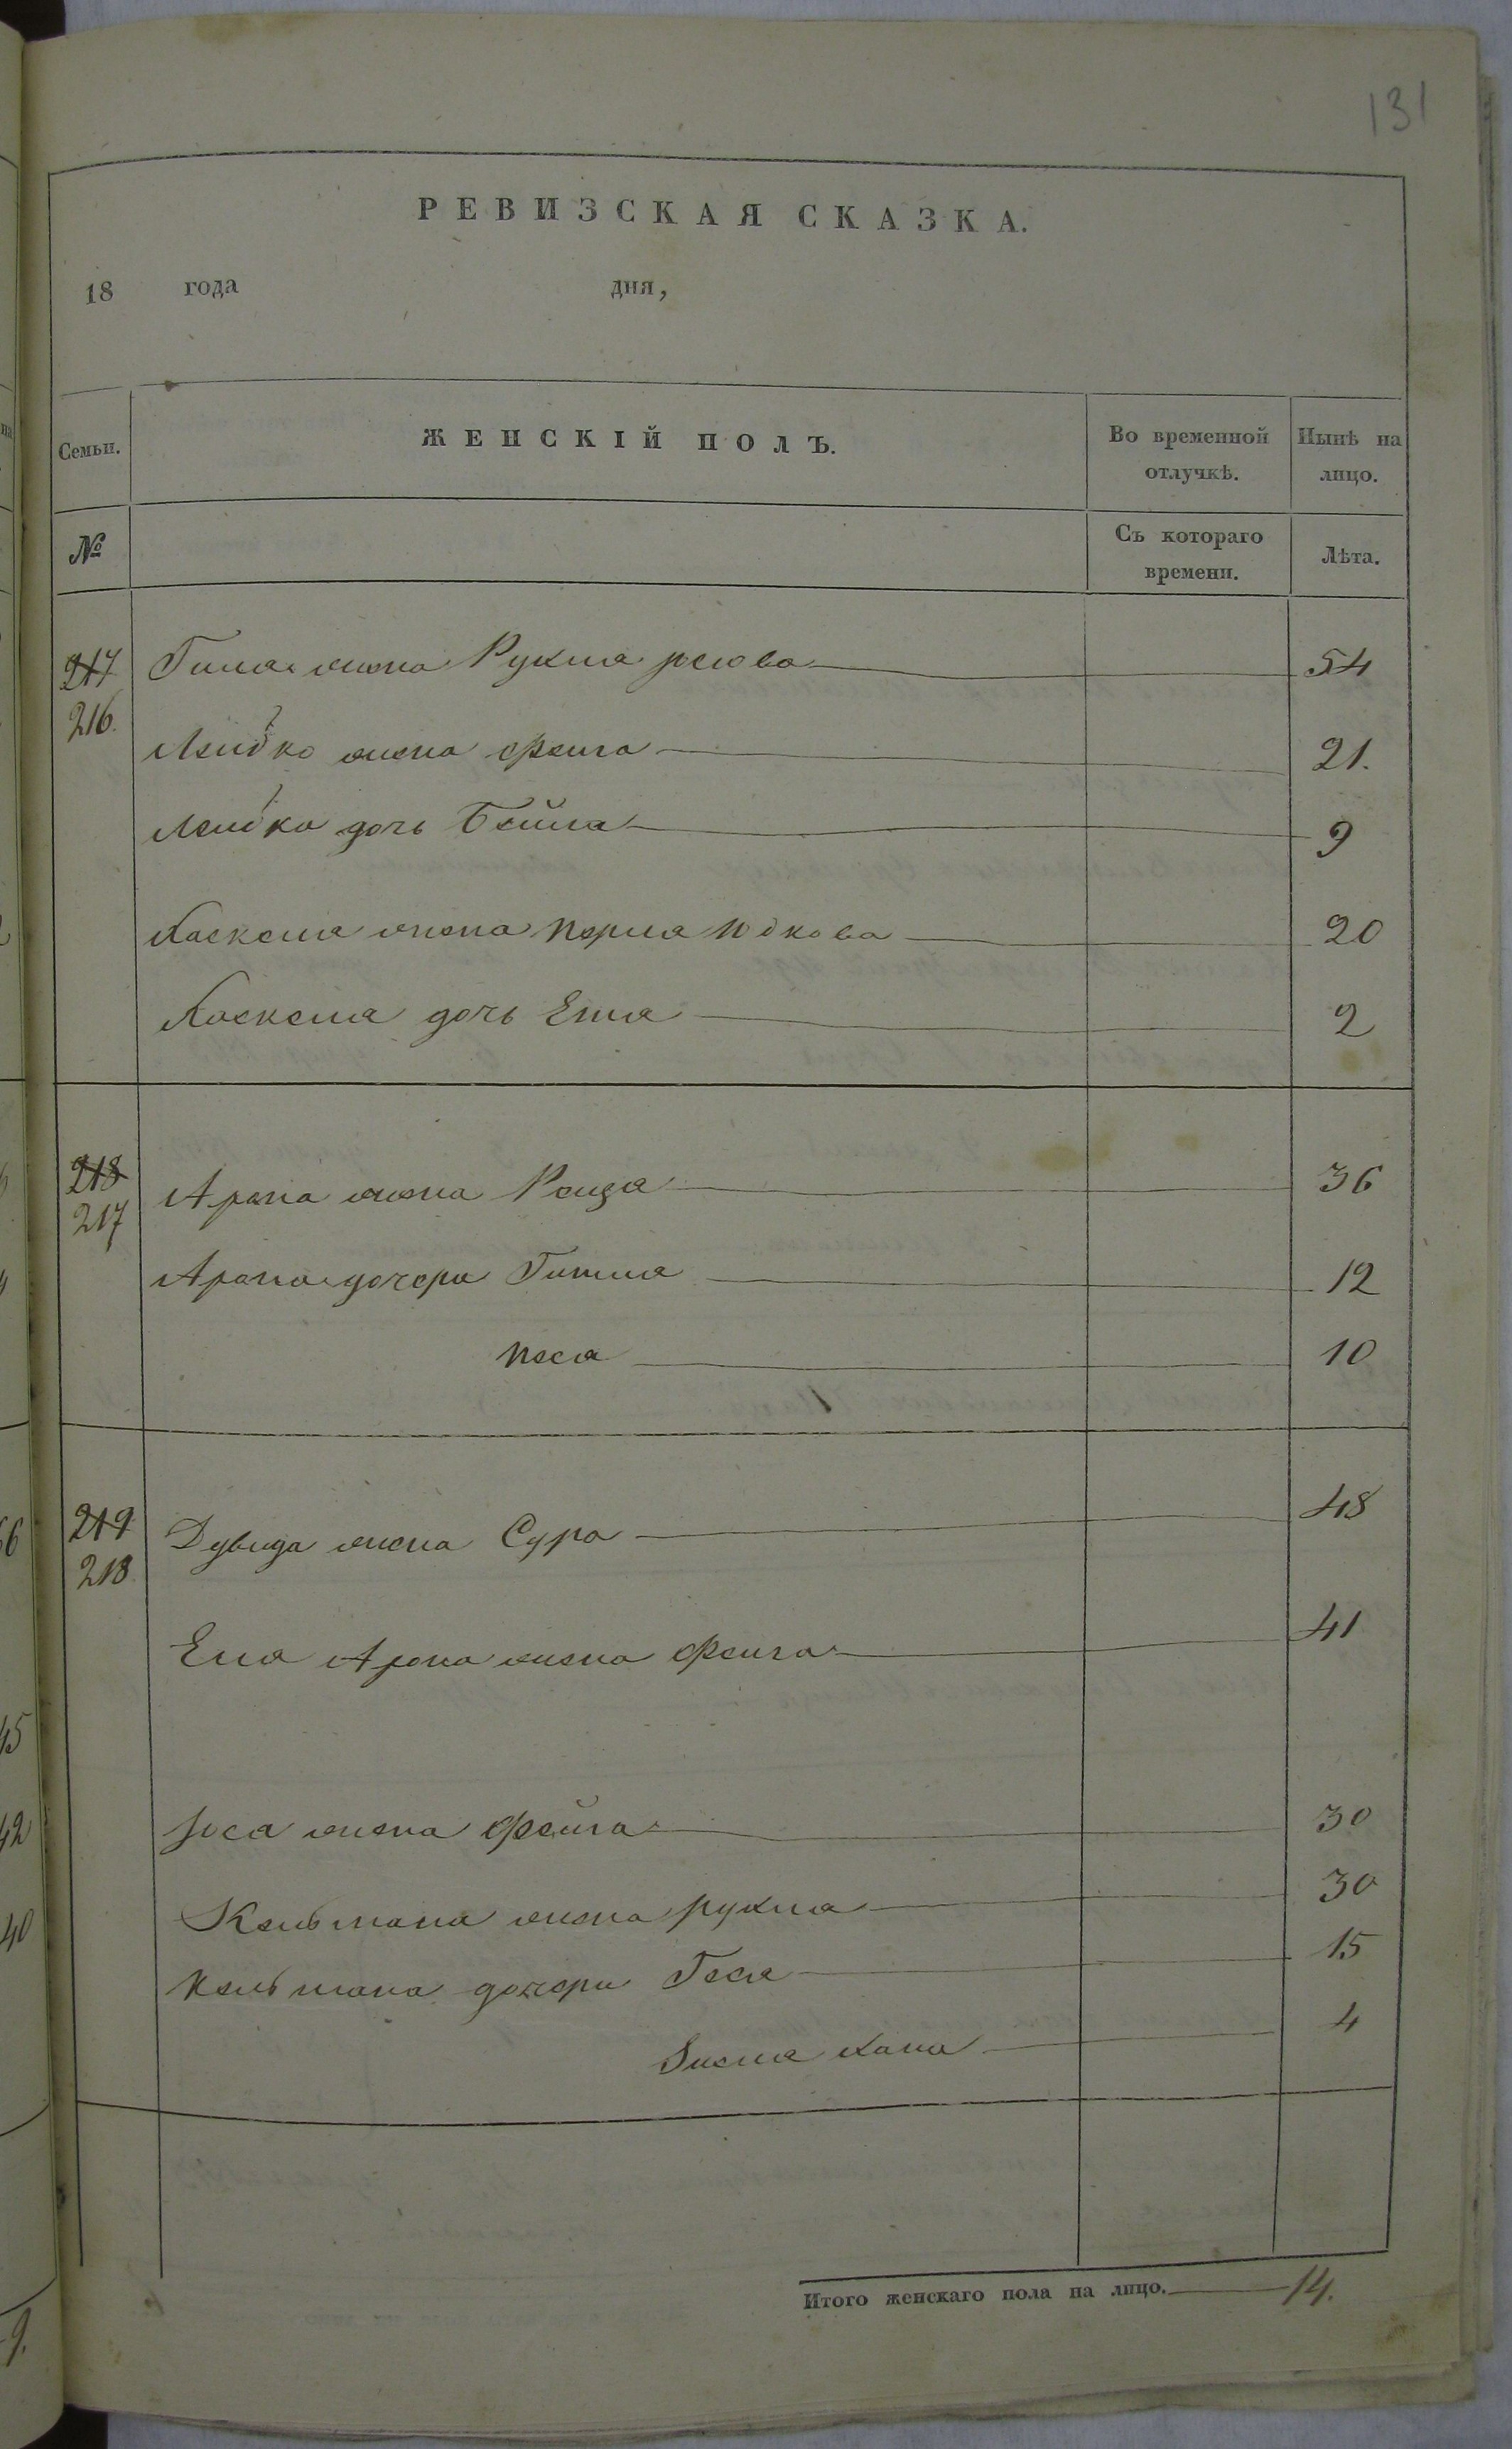 131
РЕВИЗСКАЯ СКАЗКА.
18 года дня,
Семьи. ЖЕНСКІЙ ПОЛЪ. Во временной отлучкѣ. Нынѣ на лицо.
№ Съ котораго времени. Лѣта.
217 жена Рухля 54
216.
Лейбко жена Фейга 21.
Лейбка дочь Бейла 9
Хаскеля жена Перля 20
Хаскеля дочь 2
218 Арона жена Рейзя 36
217
Арона дочери Гитля 12
Песя 10
219 Дувида жена Сура 48
218
Арона жена Фейга 41
Іоса жена Фейга 30
Кельмана жена рухля 30
Кельмана дочери Геся 15
Хана 4
Итого женскаго пола на лицо. 14.